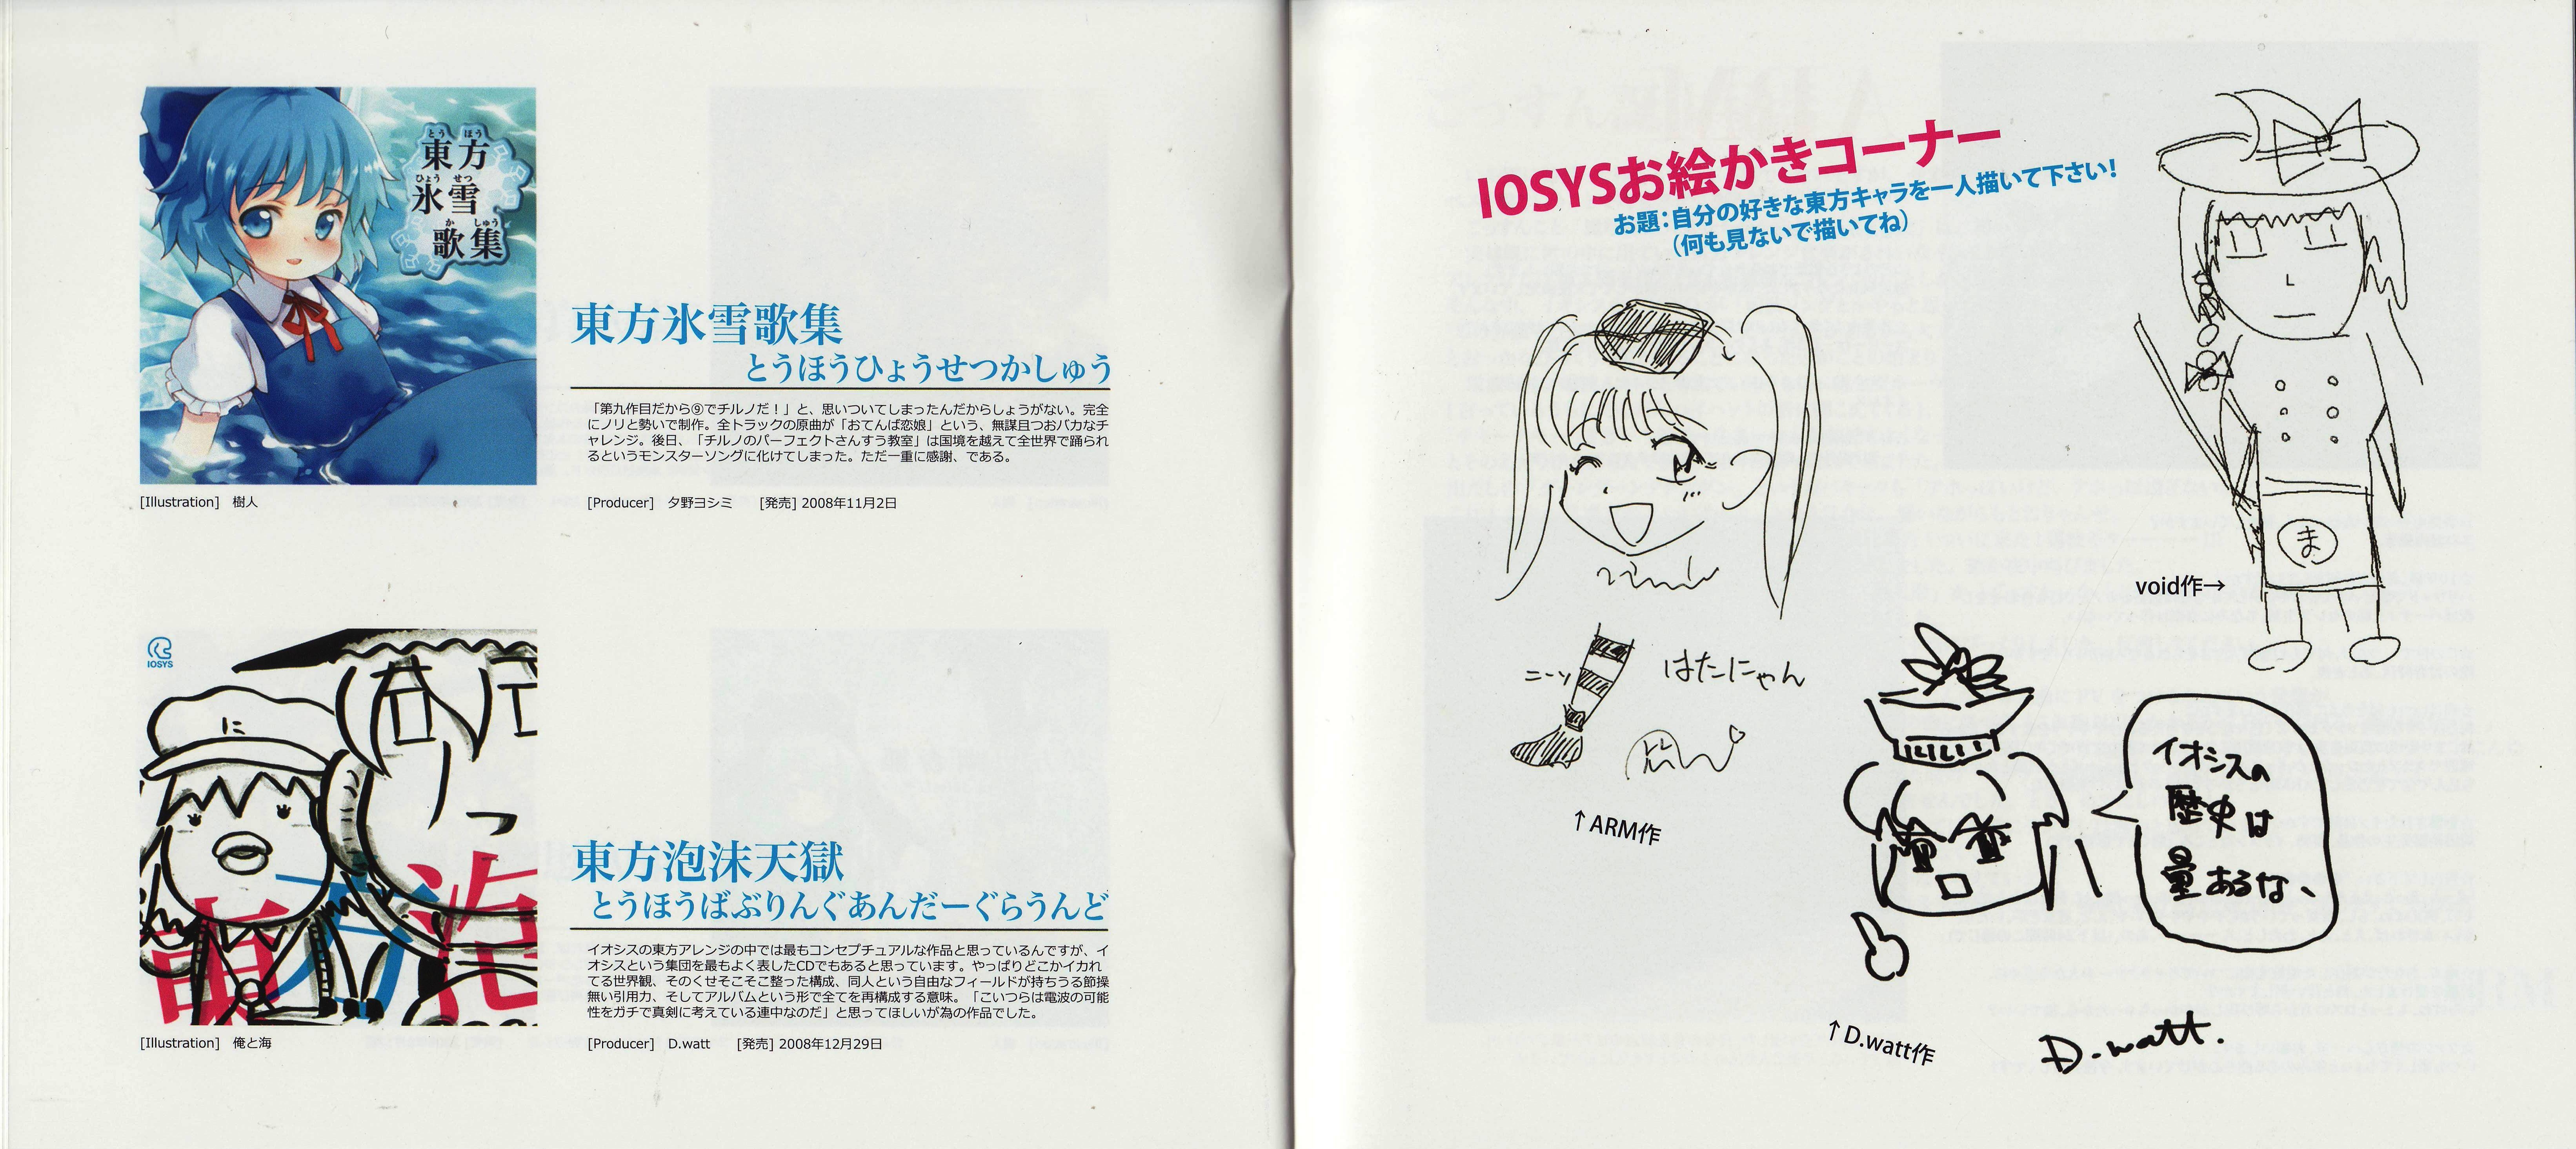 東方
とうほう
氷雪
ひょうせつ
歌集
かしゅう
東方氷雪歌集
とうほうひょうせつかしゅう
「第九作目だから⑨でチルノだ！」と、思いついてしまったんだからしょうがない。完全
にノリと勢いで制作。全トラックの原曲が「おてんば恋娘」という、無謀且つおバカなチ
ャレンジ。後日、「チルノのパーフェクトさんすう教室」は国境を越えて全世界で踊られ
るというモンスターソングに化けてしまった。ただ一重に感謝、である。
[Illustration] 樹人
[Producer] 夕野ヨシミ [発売] 2008年11月2日
IOSYS
に
東方泡
東方泡沫天獄
とうほうばぶりんぐあんだーぐらうんど
イオシスの東方アレンジの中では最もコンセプチュアルな作品と思っているんですが、イ
オシスという集団を最もよく表したCDでもあると思っています。やっぱりどこかイカれ
てる世界観、そのくせそこそこ整った構成、同人という自由なフィールドが持ちうる節操
無い引用力、そしてアルバムという形で全てを再構成する意味。「こいつらは電波の可能
性をガチで真剣に考えている連中なのだ」と思ってほしいが為の作品でした。
[Illustration] 俺と海
[Producer] D.watt [発売] 2008年12月29日
IOSYSお絵かきコーナー
お題：自分の好きな東方キャラを一人描いて下さい！
（何も見ないで描いてね）
ま
void作→
ニーソ
はたにゃん
↑ARM作
イオシスの
歴史は
量あるな、
↑D.watt作
D.watt.